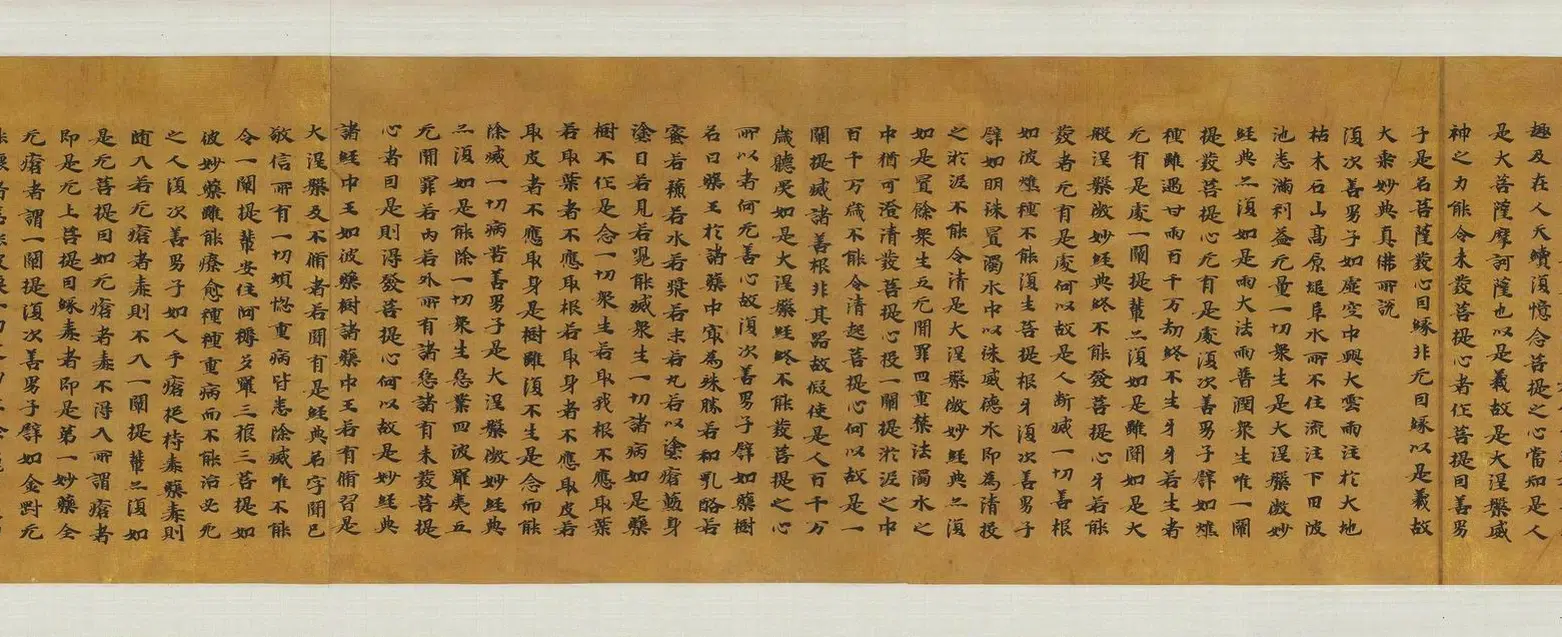 趣及在人天續復憶念菩提之心當知是人
是大菩薩摩訶薩也以是義故是大涅槃威
神之力能令未發菩提心者作菩提因善男
子是名菩薩發心因緣非无因緣以是義故
大乘妙典真佛所說
復次善男子如虛空中興大雲雨注於大地
枯木石山高原堆阜水所不住流注下田陂
池悉滿利益无量一切眾生是大涅槃微妙
經典亦復如是雨大法雨普潤眾生唯一闡
提發菩提心无有是處復次善男子譬如燋
種雖遇甘雨百千万劫終不生牙牙若生者
无有是處一闡提輩亦復如是雖聞如是大
般涅槃微妙經典終不能發菩提心牙若能
發者无有是處何以故是人斷滅一切善根
如彼燋種不能復生菩提根牙復次善男子
譬如明珠置濁水中以珠威德水即為清投
之淤泥不能令清是大涅槃微妙經典亦復
如是置餘眾生五无間罪四重禁法濁水之
中猶可澄清發菩提心投一闡提淤泥之中
百千万歲不能令清起菩提心何以故是一
闡提滅諸善根非其器故假使是人百千万
歲聽受如是大涅槃經終不能發菩提之心
所以者何无善心故復次善男子譬如藥樹
名曰藥王於諸藥中最為殊勝若和乳酪若
蜜若蘇若水若漿若末若丸若以塗瘡薰身
塗目若見若嗅能滅眾生一切諸病如是藥
樹不作是念一切眾生若取我根不應取葉
若取葉者不應取根若取身者不應取皮若
取皮者不應取身是樹雖復不生是念而能
除滅一切病苦善男子是大涅槃微妙經典
亦復如是能除一切眾生惡業四波羅夷五
无間罪若內若外所有諸惡諸有未發菩提
心者因是則得發菩提心何以故是妙經典
諸經中王如彼藥樹諸藥中王若有脩習是
大涅槃及不脩者若聞有是經典名字聞已
敬信所有一切煩惱重病皆悉除滅唯不能
令一闡提輩安住阿耨多羅三藐三菩提如
彼妙藥雖能療愈種種重病而不能治必死
之人復次善男子如人手瘡捉持毒藥毒則
隨入若无瘡者毒則不入一闡提輩亦復如
是无菩提因如无瘡者毒不得入所謂瘡者
即是无上菩提因緣毒者即是第一妙藥全
无瘡者謂一闡提復次善男子譬如金剛无